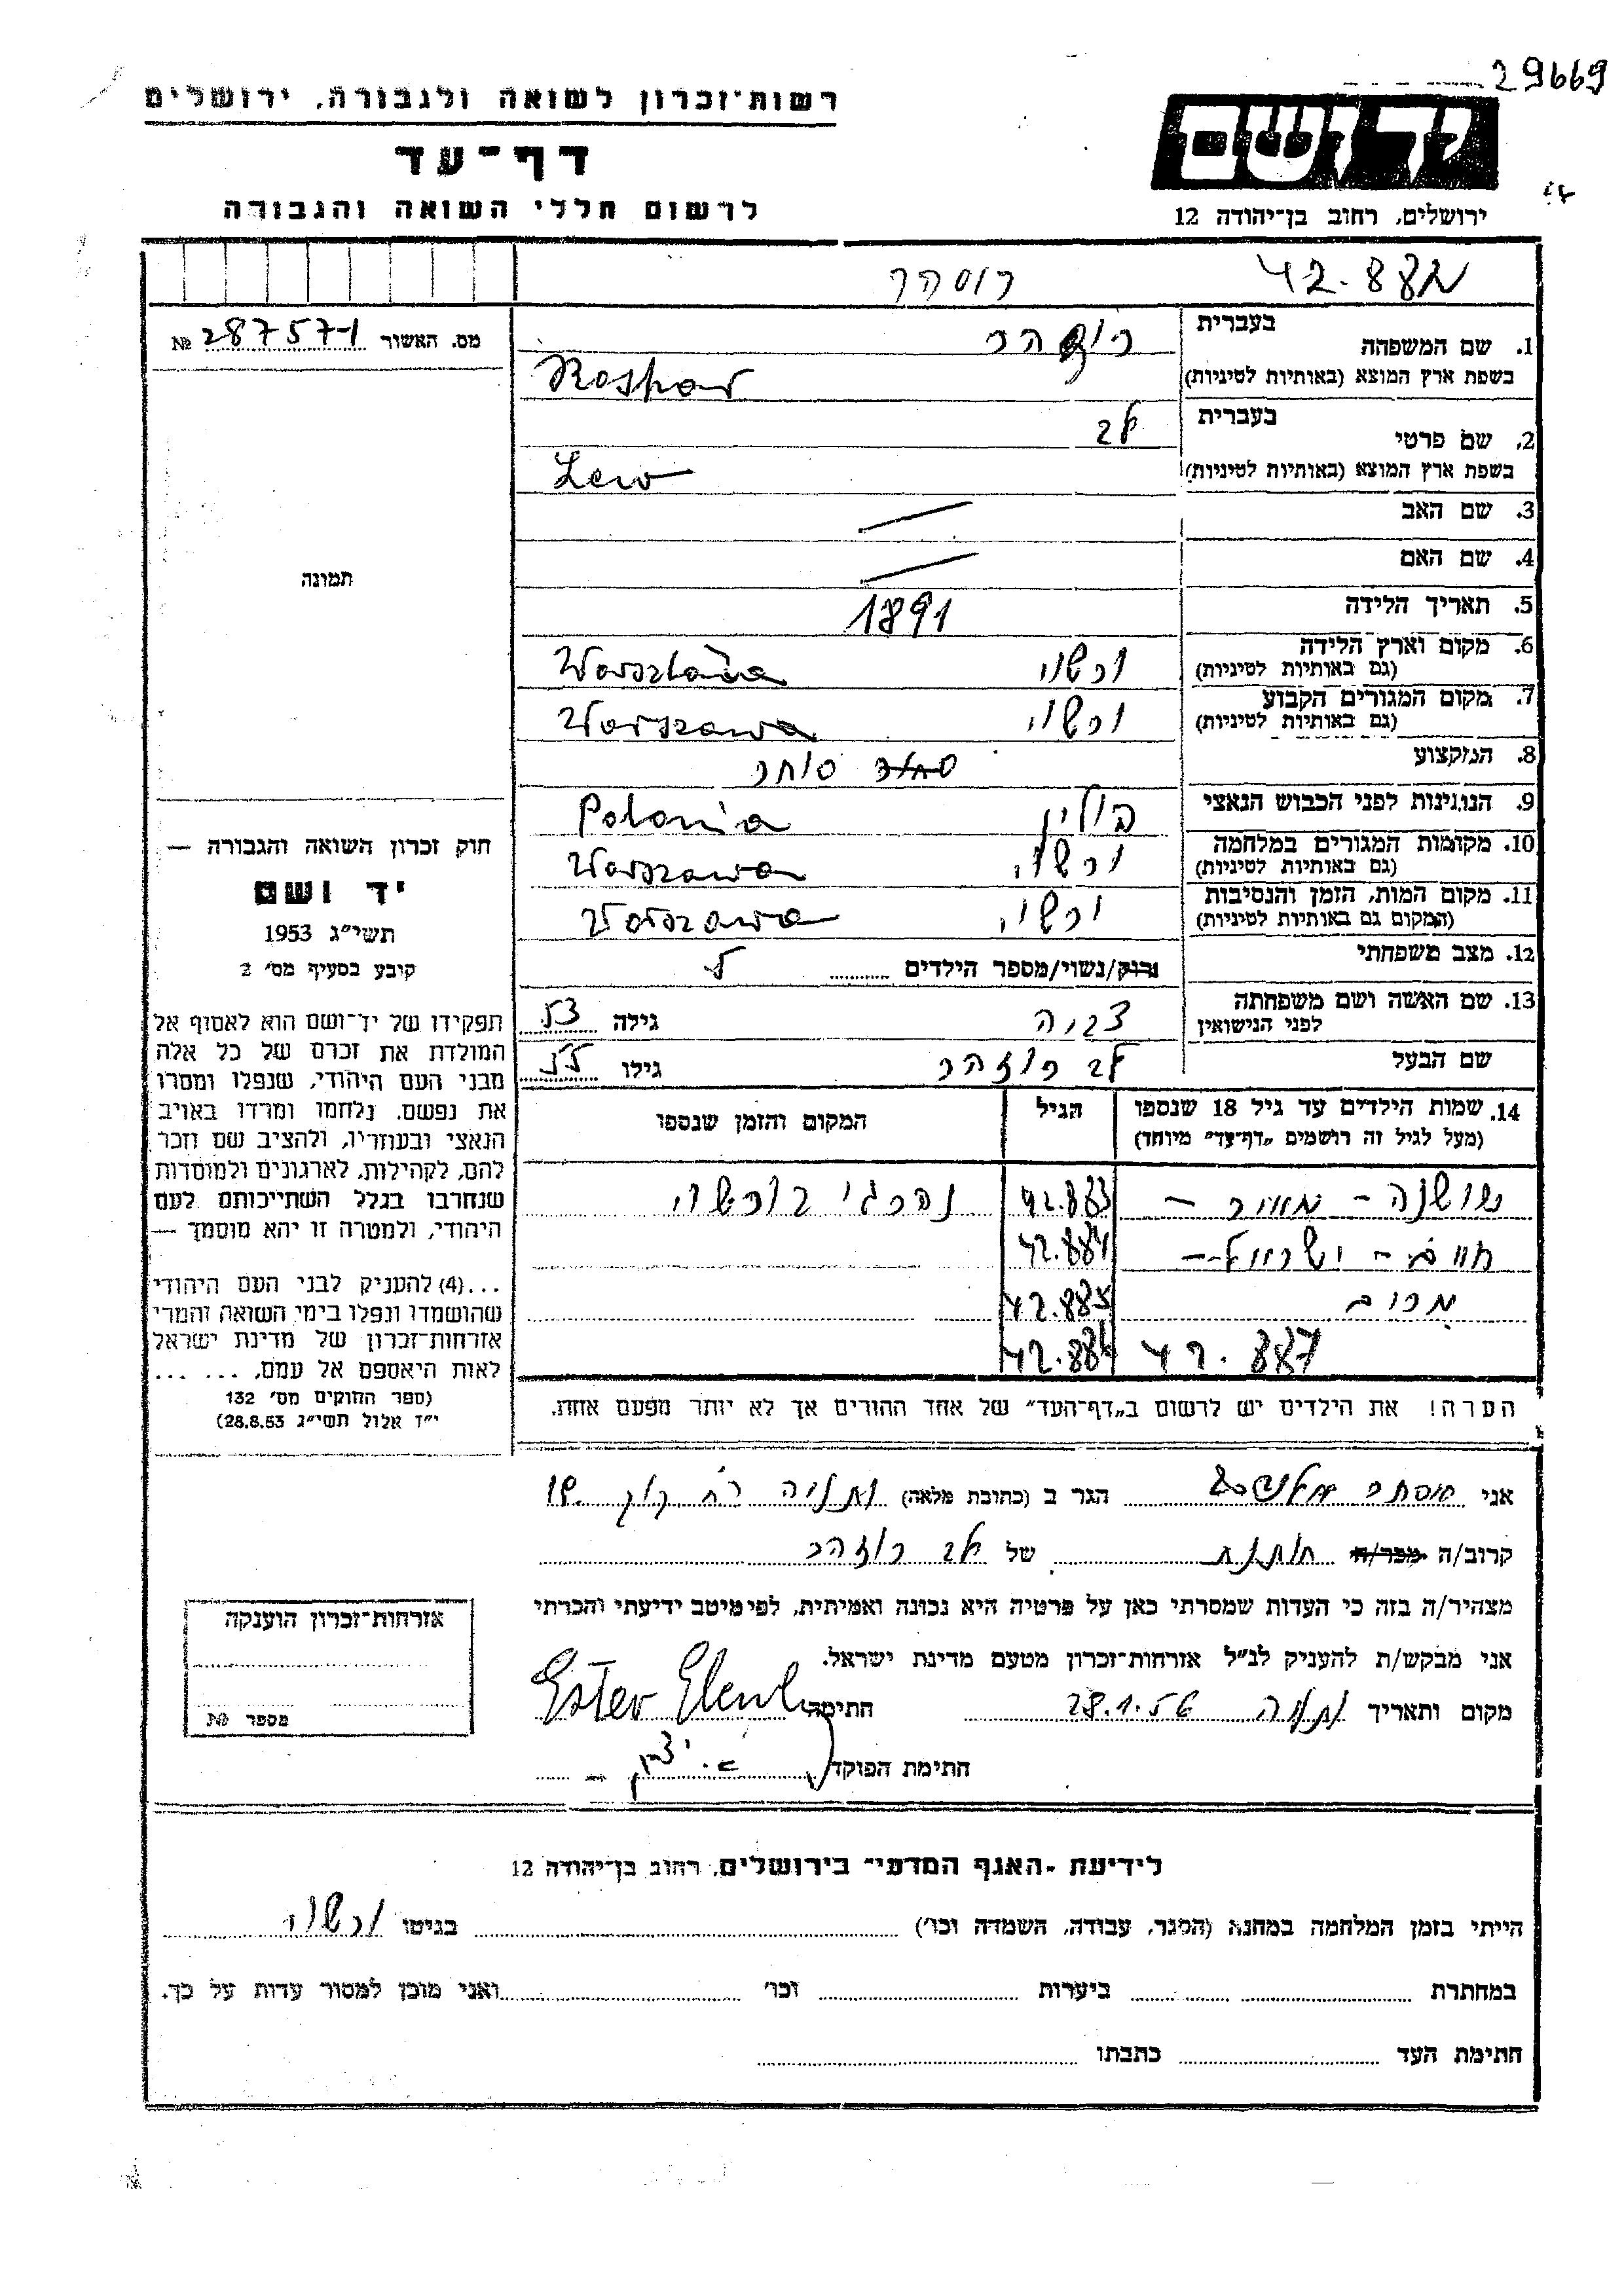 29669
רשות־זכרון לשואה ולגבורה, ירושלים
דף־עד
לרשום חללי השואה והגבורה
יד ושם
ירושלים, רחוב בן־יהודה 12
42.888
רוסהר
מס. האשור № 287571
1. שם המשפחה בעברית
בשפת ארץ המוצא (באותיות לטיניות) Roshar
2. שם פרטי בעברית לב
בשפת ארץ המוצא (באותיות לטיניות) Lew
3. שם האב
4. שם האם
5. תאריך הלידה 1891
6. מקום וארץ הלידה ורשה
(גם באותיות לטיניות) Warszawa
7. מקום המגורים הקבוע ורשה
(גם באותיות לטיניות) Warszawa
8. המקצוע סוחר
9. הנתינות לפני הכבוש הנאצי פולין Polania
10. מקומות המגורים במלחמה ורשה
(גם באותיות לטיניות) Warszawa
11. מקום המות, הזמן והנסיבות ורשה
(המקום גם באותיות לטיניות) Warszawa
12. מצב משפחתי רוק/נשוי/מספר הילדים 5
13. שם האשה ושם משפחתה
לפני הנישואין גילה 53
שם הבעל לב רוזהר גילו 55
תמונה
חוק זכרון השואה והגבורה —
יד ושם
תשי״ג 1953
קובע בסעיף מס׳ 2
תפקידו של יד־ושם הוא לאסוף אל
המולדת את זכרם של כל אלה
מבני העם היהודי, שנפלו ומסרו
את נפשם, נלחמו ומרדו באויב
הנאצי ובעוזריו, ולהציב שם וזכר
להם, לקהילות, לארגונים ולמוסדות
שנחרבו בגלל השתייכותם לעם
היהודי, ולמטרה זו יהא מוסמך —
...(4) להעניק לבני העם היהודי
שהושמדו ונפלו בימי השואה והמרי
אזרחות־זכרון של מדינת ישראל
לאות היאספם אל עמם. ... ...
(ספר החוקים מס׳ 132
י״ד אלול תשי״ג 28.8.53)
14. שמות הילדים עד גיל 18 שנספו הגיל המקום והזמן שנספו
(מעל לגיל זה רושמים „דף־עד״ מיוחד)
שושנה – מאיר – 42.883 נהרגו בורשה
חיים – ישראל – 42.884
42.885
42.886 42.887
הערה! את הילדים יש לרשום ב„דף־העד״ של אחד ההורים אך לא יותר מפעם אחת.
אני אסתר הגר ב (כתובת מלאה) נתניה רח׳ קוק
קרוב/ה מכר/ה חותנת של לב רוזהר
מצהיר/ה בזה כי העדות שמסרתי כאן על פרטיה היא נכונה ואמיתית, לפי מיטב ידיעתי והכרתי
אני מבקש/ת להעניק לנ״ל אזרחות־זכרון מטעם מדינת ישראל.
מקום ותאריך נתניה 28.1.56 חתימה Ester
חתימת הפוקד
אזרחות־זכרון הוענקה
מספר №
לידיעת ־האגף המדעי־ בירושלים, רחוב בן־יהודה 12
הייתי בזמן המלחמה במחנה (הסגר, עבודה, השמדה וכו׳) בגיטו ורשה
במחתרת ביערות וכו׳ ואני מוכן למסור עדות על כך.
חתימת העד כתבתו